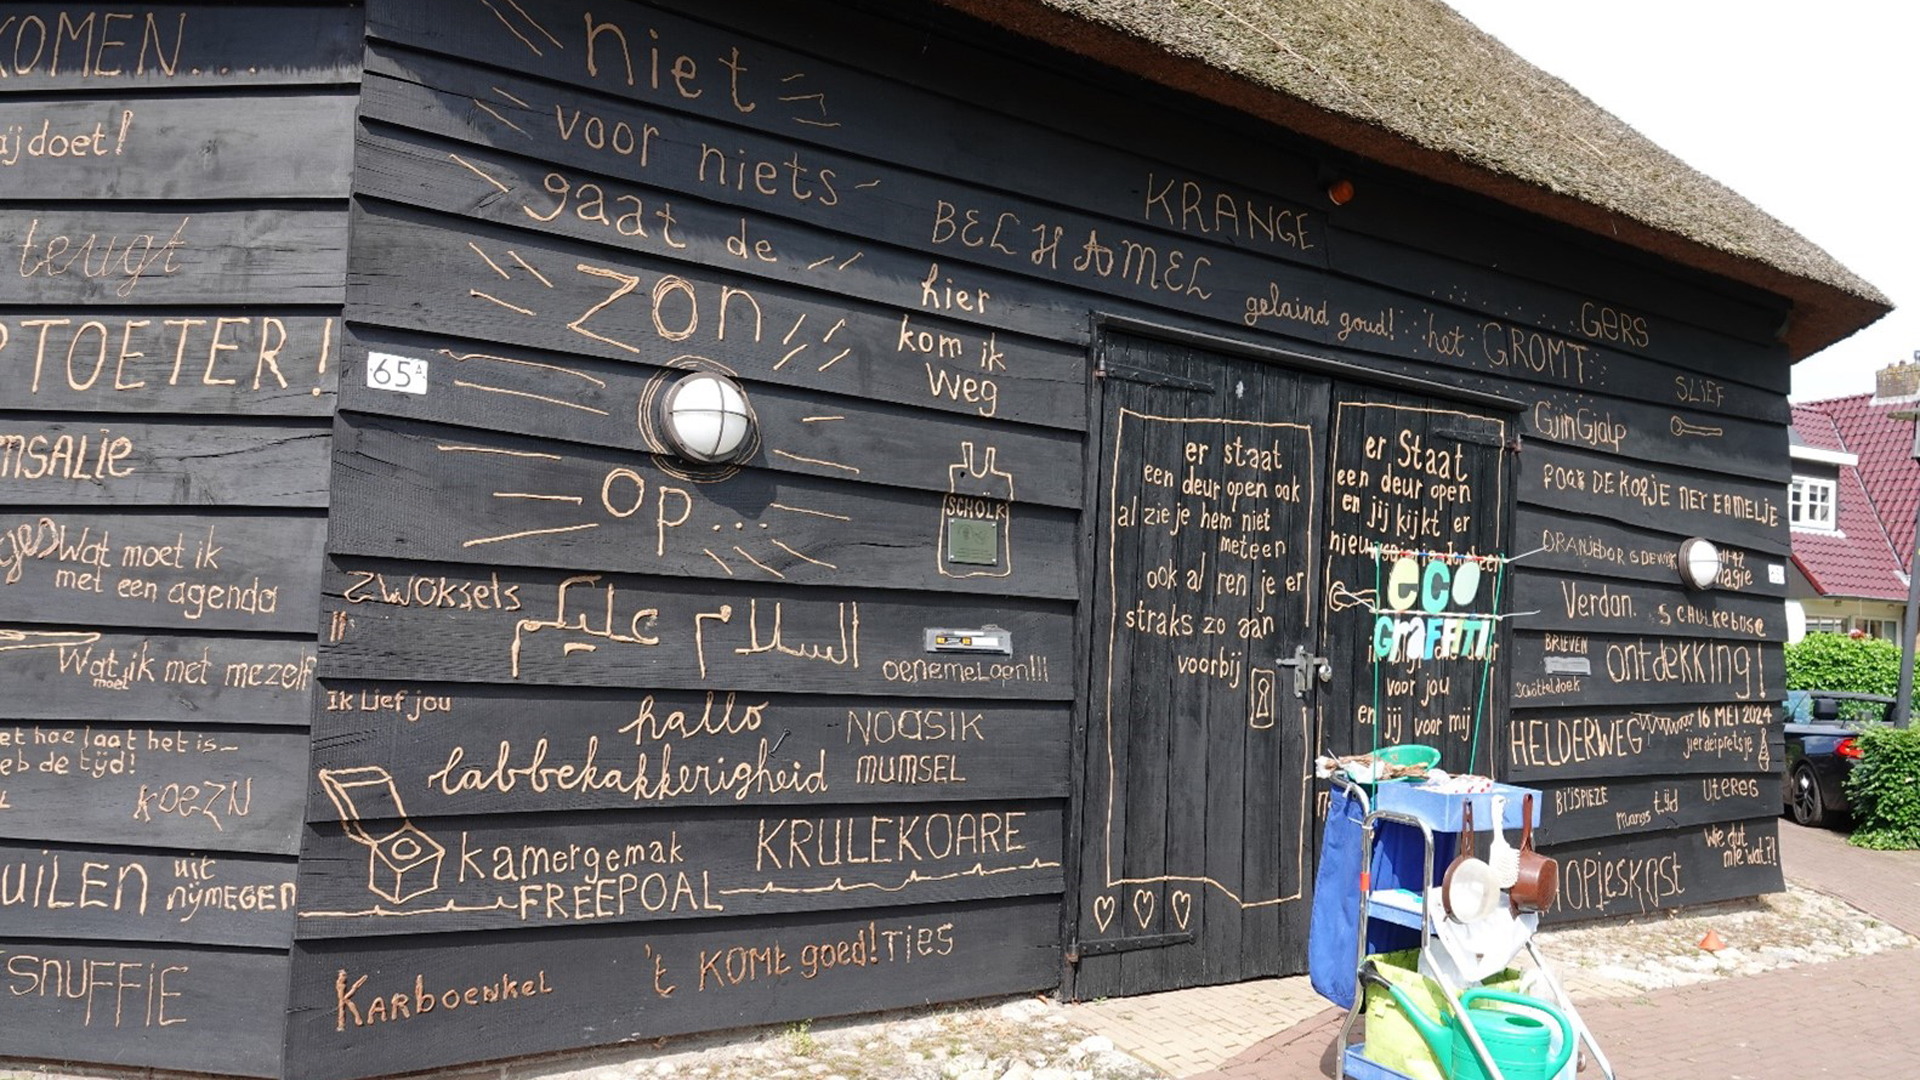 KOMEN...
doet!
teugt
TOETER!
MSALIE
Wat moet ik
met een agenda
Wat moet ik met mezelf
et hoe laat het is_
eb de tijd!
KOEZN
UILEN uit
nijmegen
SNUFFIE
niet
voor niets
gaat de
zon
op...
65A
KRANGE
BELHAMEL
gelaind goud!
het GROMT
GERS
hier
kom ik
weg
SCHOLK
ZWOKSELS
السلام عليكم
oenemeloen!!!
Ik Lief jou
hallo
labbekakkerigheid
NOASIK
MUMSEL
kamergemak
FREEPOAL
KRULEKOARE
Karboenkel
't KOMt goed!
TIES
er staat
een deur open ook
al zie je hem niet
meteen
ook al ren je er
straks zo aan
voorbij
er Staat
een deur open
en jij kijkt er
voor jou
en jij voor mij
eco
GRAFFITI
SLIEF
GjinGjalp
FOAR DE KOPJE NET EAMELJE
magie
Verdan.
SCHULKEBUSE
BRIEVEN
ontdekking!
Schötteldoek
HELDERWEG
16 MEI 2024
jierdeipretsje
BIJSPIEZE
mangs tijd
UTEREG
wie dut
mie wat?!
OPJESKAST